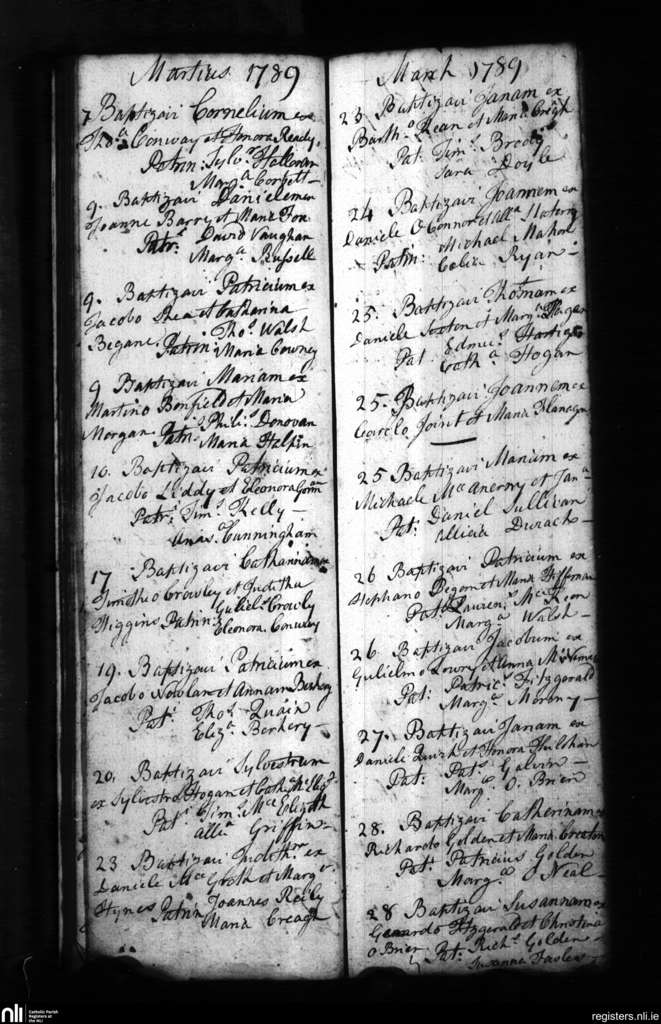 Martius 1789
7 Baptizavi Cornelium ex
Thoa Conway et Honora Reidy
Patrin: Sylvr Halloran
Marga Corbett
9. Baptizavi Danielem ex
Joanne Barry et Maria Fox
Patr: David Vaughan
Marga Russell
9. Baptizavi Patricium ex
Jacobo Shea et Catharina
Begane. Patrin: Thos Walsh
Maria Cowney
9 Baptizavi Mariam ex
Martino Bonfield et Maria
Morgan. Patr: Philis Donovan
Maria Halpin
10. Baptizavi Patricium ex
Jacobo Liddy et Eleonora Gorman
Patr: Tims Kelly
Cunningham
17 Baptizavi Catharinam ex
Timotheo Crowley et Juditha
Higgins Patrin: Guliels Crowly
Eleonora Conway
19. Baptizavi Patricium ex
Jacobo Nowlan et Annam Berkery
Pat: Thos Quain
Eliza Berkery
20. Baptizavi Sylvestrum
ex Sylvestro Hogan et Cath
Pat: Tims McEligott
Allia Griffin
23 Baptizavi Juditham ex
Daniele McGrath et Marga
Hynes Patrin Joannes Reily
Maria Creagh
March 1789
23 Baptizavi Janam ex
Bartho Kean et Maria Creagh
Pat: Tims Brody
Sara Doyle
24 Baptizavi Joannem ex
Daniele O Connor et Alla
Patrin: Michael Mahon
Celia Ryan
25. Baptizavi Thomam ex
Daniele Sexton et Marga Hogan
Pat: Edmus Hartigan
Catha Hogan
25. Baptizavi Joannem ex
Carolo Joint et Maria Flanagan
25 Baptizavi Mariam ex
Michaele McAnerny et Jana
Pat: Daniel Sullivan
Allicia Durack
26 Baptizavi Patricium ex
Stephano Begom et Maria Hiffernan
Pat: Laurens McKeon
Marga Walsh
26. Baptizavi Jacobum ex
Gulielmo Lowry et Anna McNamara
Pat: Patrics Fitzgerald
Marga Moroney
27. Baptizavi Janam ex
Daniele Quirk et Honora Hulihan
Pat: Pats Galvin
Marga O Brien
28. Baptizavi Catherinam ex
Richardo Golden et Maria Creaton
Pat: Patricius Golden
Marga O Neal
28 Baptizavi Susannam ex
Gerardo Fitzgerald et Christina
O Brien Pat: Richd Golden
Susanna
nli
Catholic Parish
Registers at
the NLI
registers.nli.ie